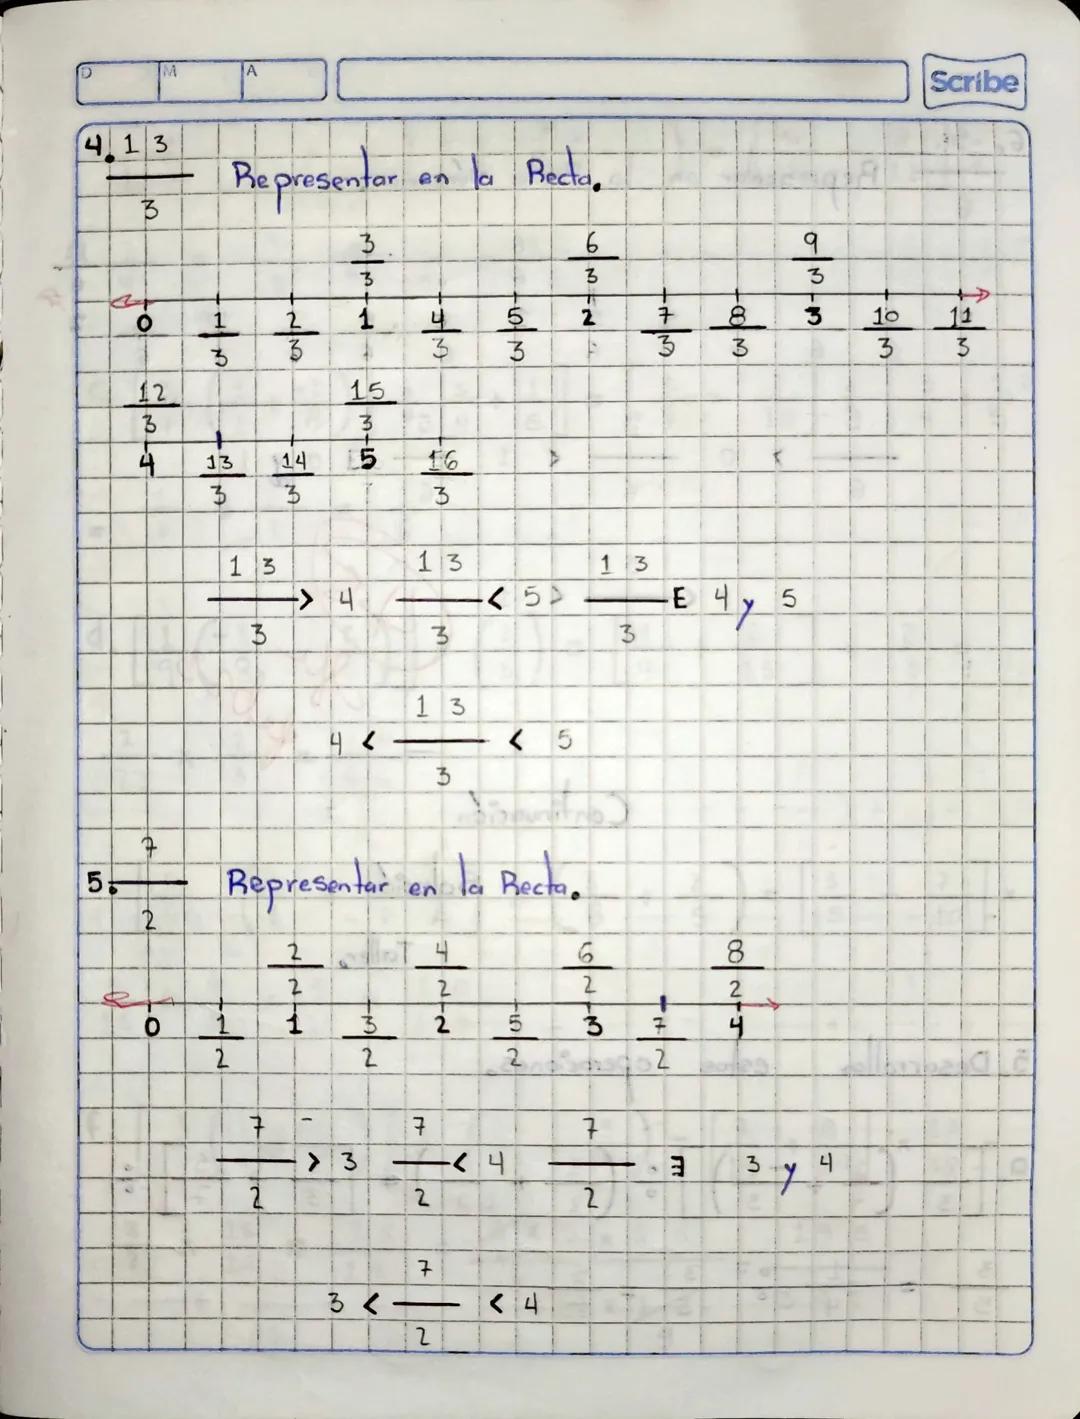 D M A Scribe
4. 13/3 Representar en la Recta.
3/3 6/3 9/3
0 1/3 2/3 1 4/3 5/3 2 7/3 8/3 3 10/3 11/3
12/3 15/3
4 13/3 14/3 5 16/3
13/3 > 4 13/3 < 5 > 13/3 E 4 y 5
4 < 13/3 < 5
5. 7/2 Representar en la Recta.
2/2 4/2 6/2 8/2
0 1/2 1 3/2 2 5/2 3 7/2 4
7/2 > 3 7/2 < 4 7/2 ∃ 3 y 4
3 < 7/2 < 4